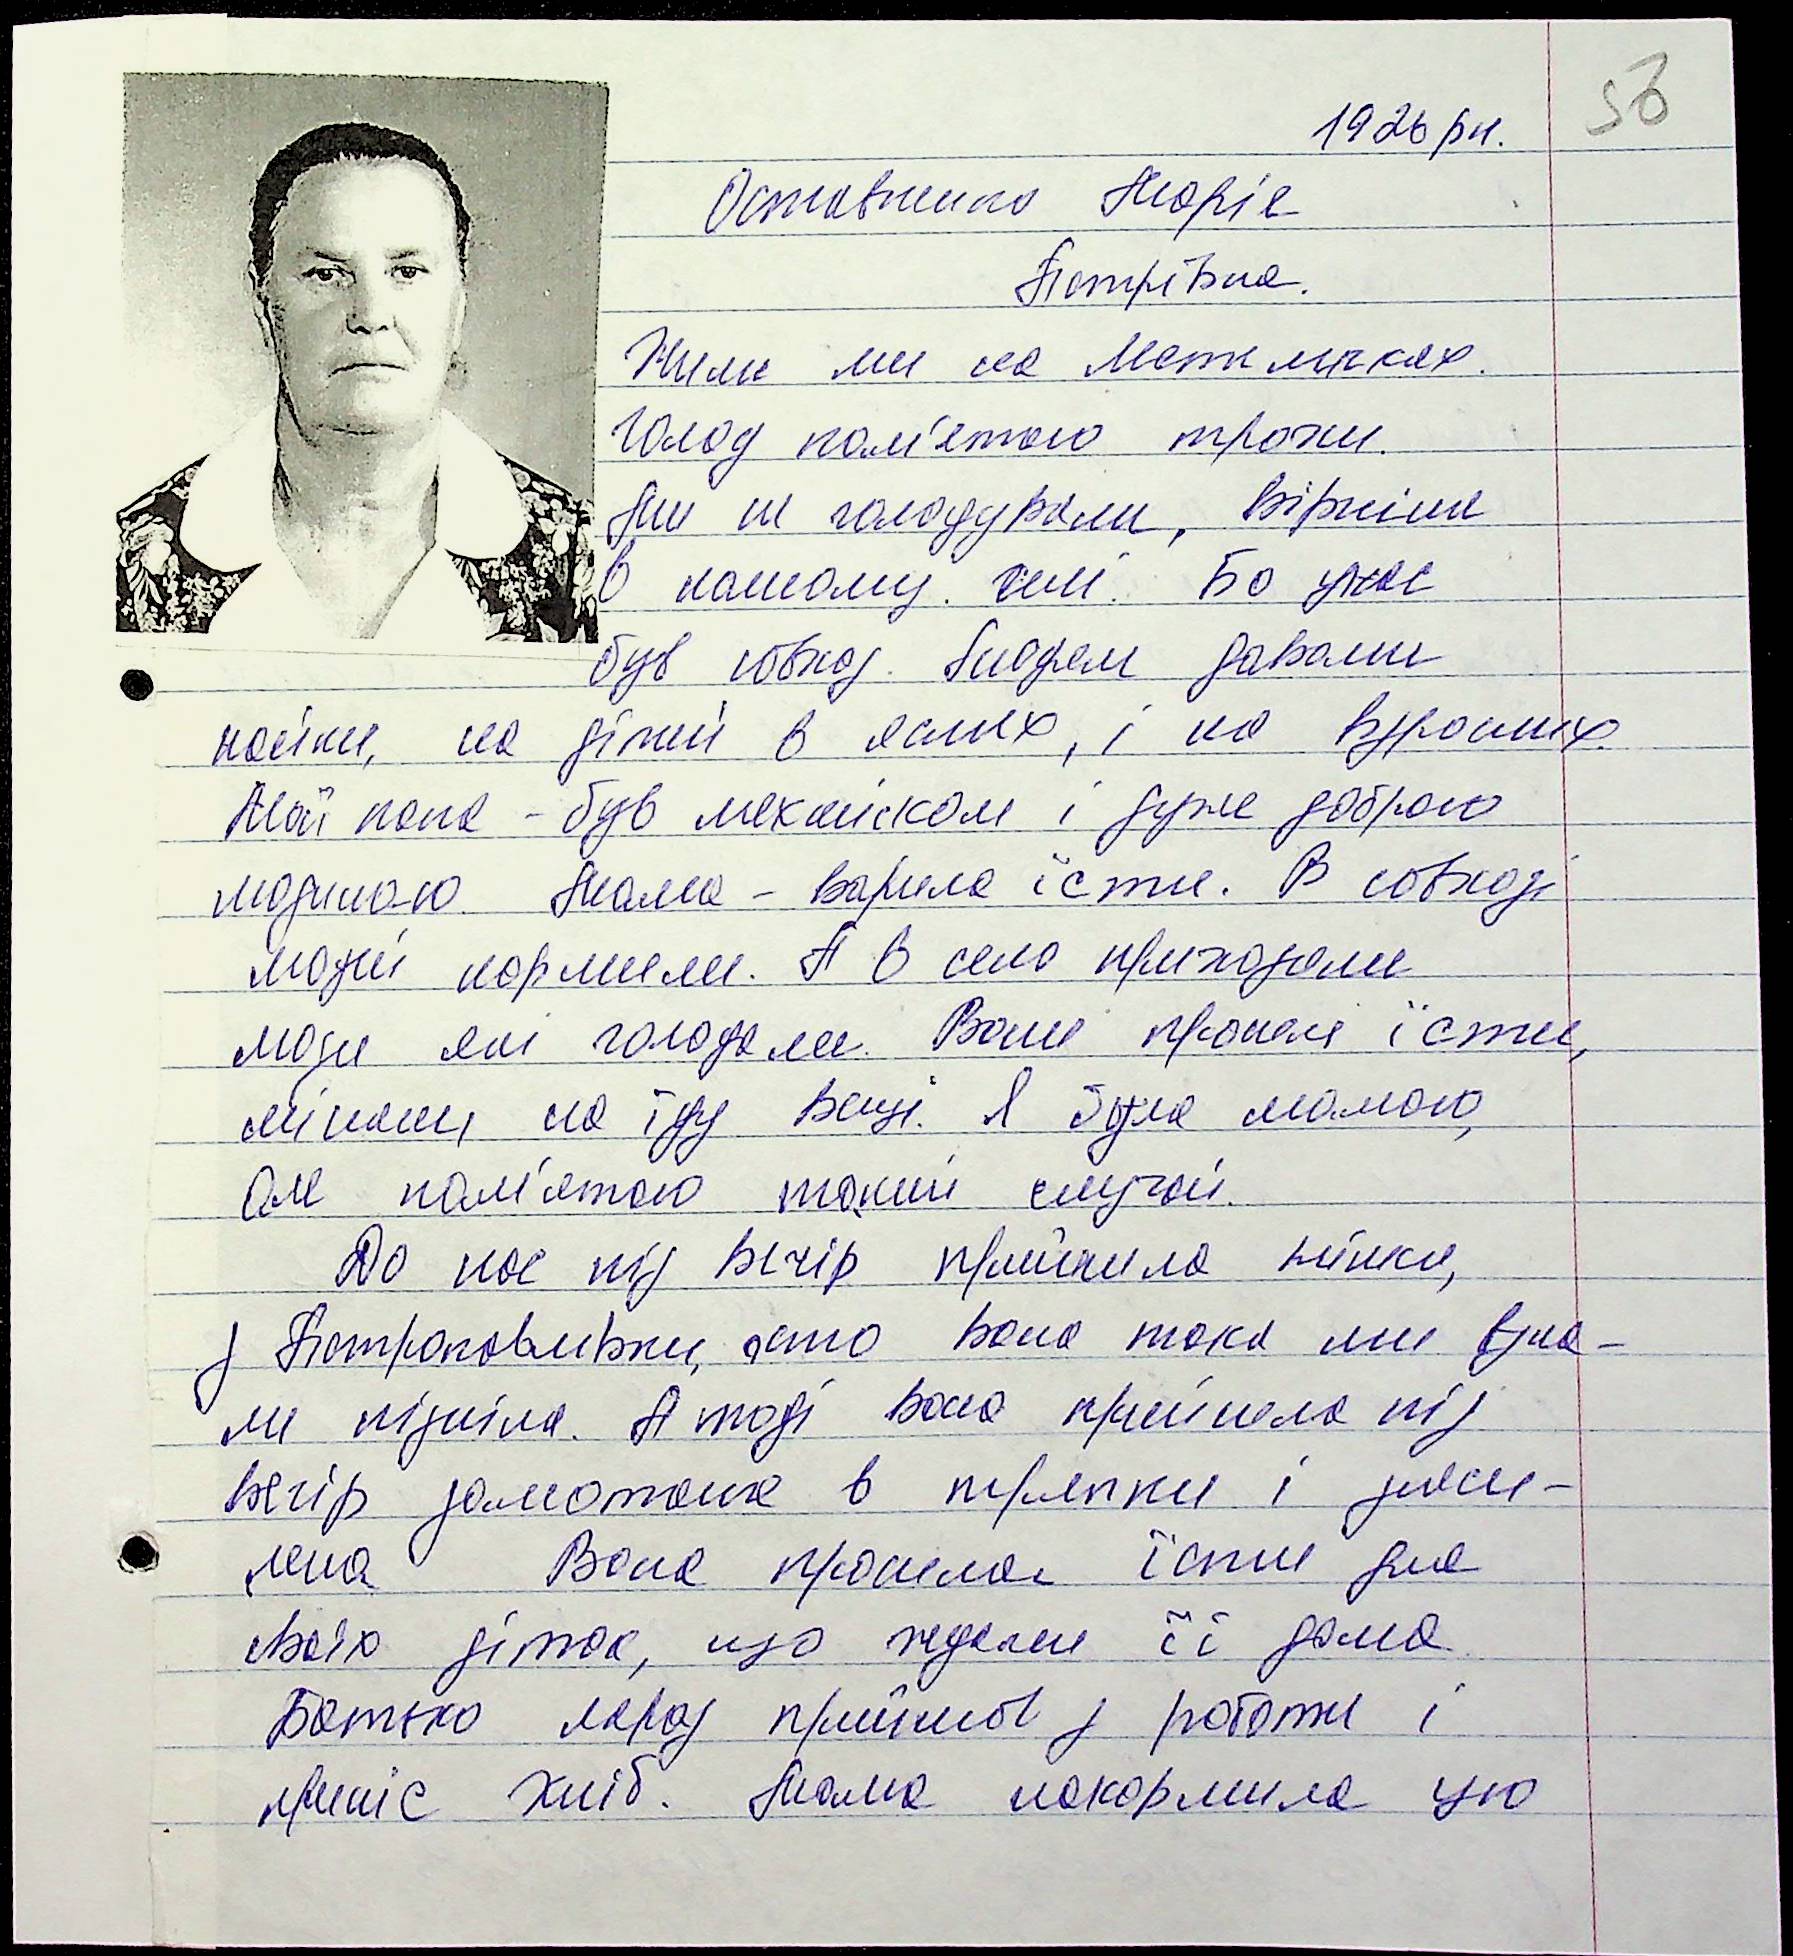 56
1926 рн.
Оставненко Марія
Петрівна.
Жили ми на
Голод пам'ятаю трохи.
Ми не голодували, вірніше
в нашому селі. Бо у нас
був совхоз. Людям давали
пайки, на дітей в яслях, і на взрослих.
Мой папа - був механіком і дуже доброю
людиною. Мама - варила їсти. В совхозі
людей кормили. А в село приходили
люди які голодали. Вони просили їсти,
міняли на їду вещі. Я була малою,
але пам'ятаю такий случай.
До нас під вечір прийшла жінка,
з Петропавлівки, що вона така ми взна-
ли пізніше. А тоді вона прийшла під
вечір замотана в тряпки і знеси-
лена Вона просила їсти для
своїх діток, що ждали її дома.
Батько якраз прийшов з роботи і
приніс хліб. Мама накормила цю